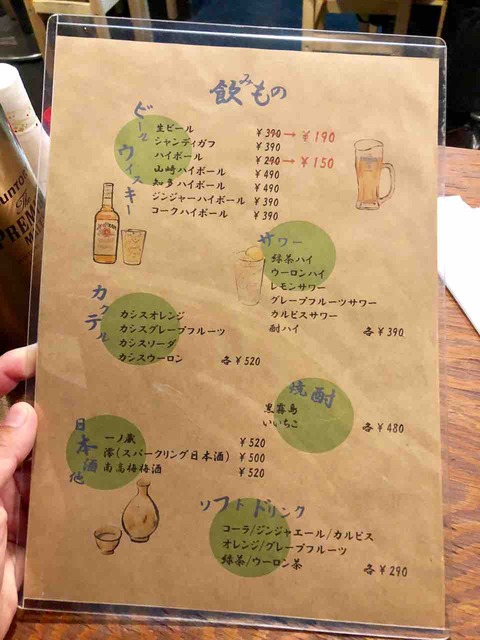 飲みもの
ビール ウィスキー
生ビール ¥390→¥190
シャンディガフ ¥390
ハイボール ¥290→¥150
山崎ハイボール ¥490
知多ハイボール ¥490
ジンジャーハイボール ¥390
コークハイボール ¥390
サワー
緑茶ハイ
ウーロンハイ
レモンサワー
グレープフルーツサワー
カルピスサワー
酎ハイ 各¥390
カクテル
カシスオレンジ
カシスグレープフルーツ
カシスソーダ
カシスウーロン 各¥520
焼酎
黒霧島
いいちこ 各¥480
日本酒 他
一ノ蔵 ¥520
澪(スパークリング日本酒) ¥500
南高梅梅酒 ¥520
ソフトドリンク
コーラ/ジンジャエール/カルピス
オレンジ/グレープフルーツ
緑茶/ウーロン茶 各¥290